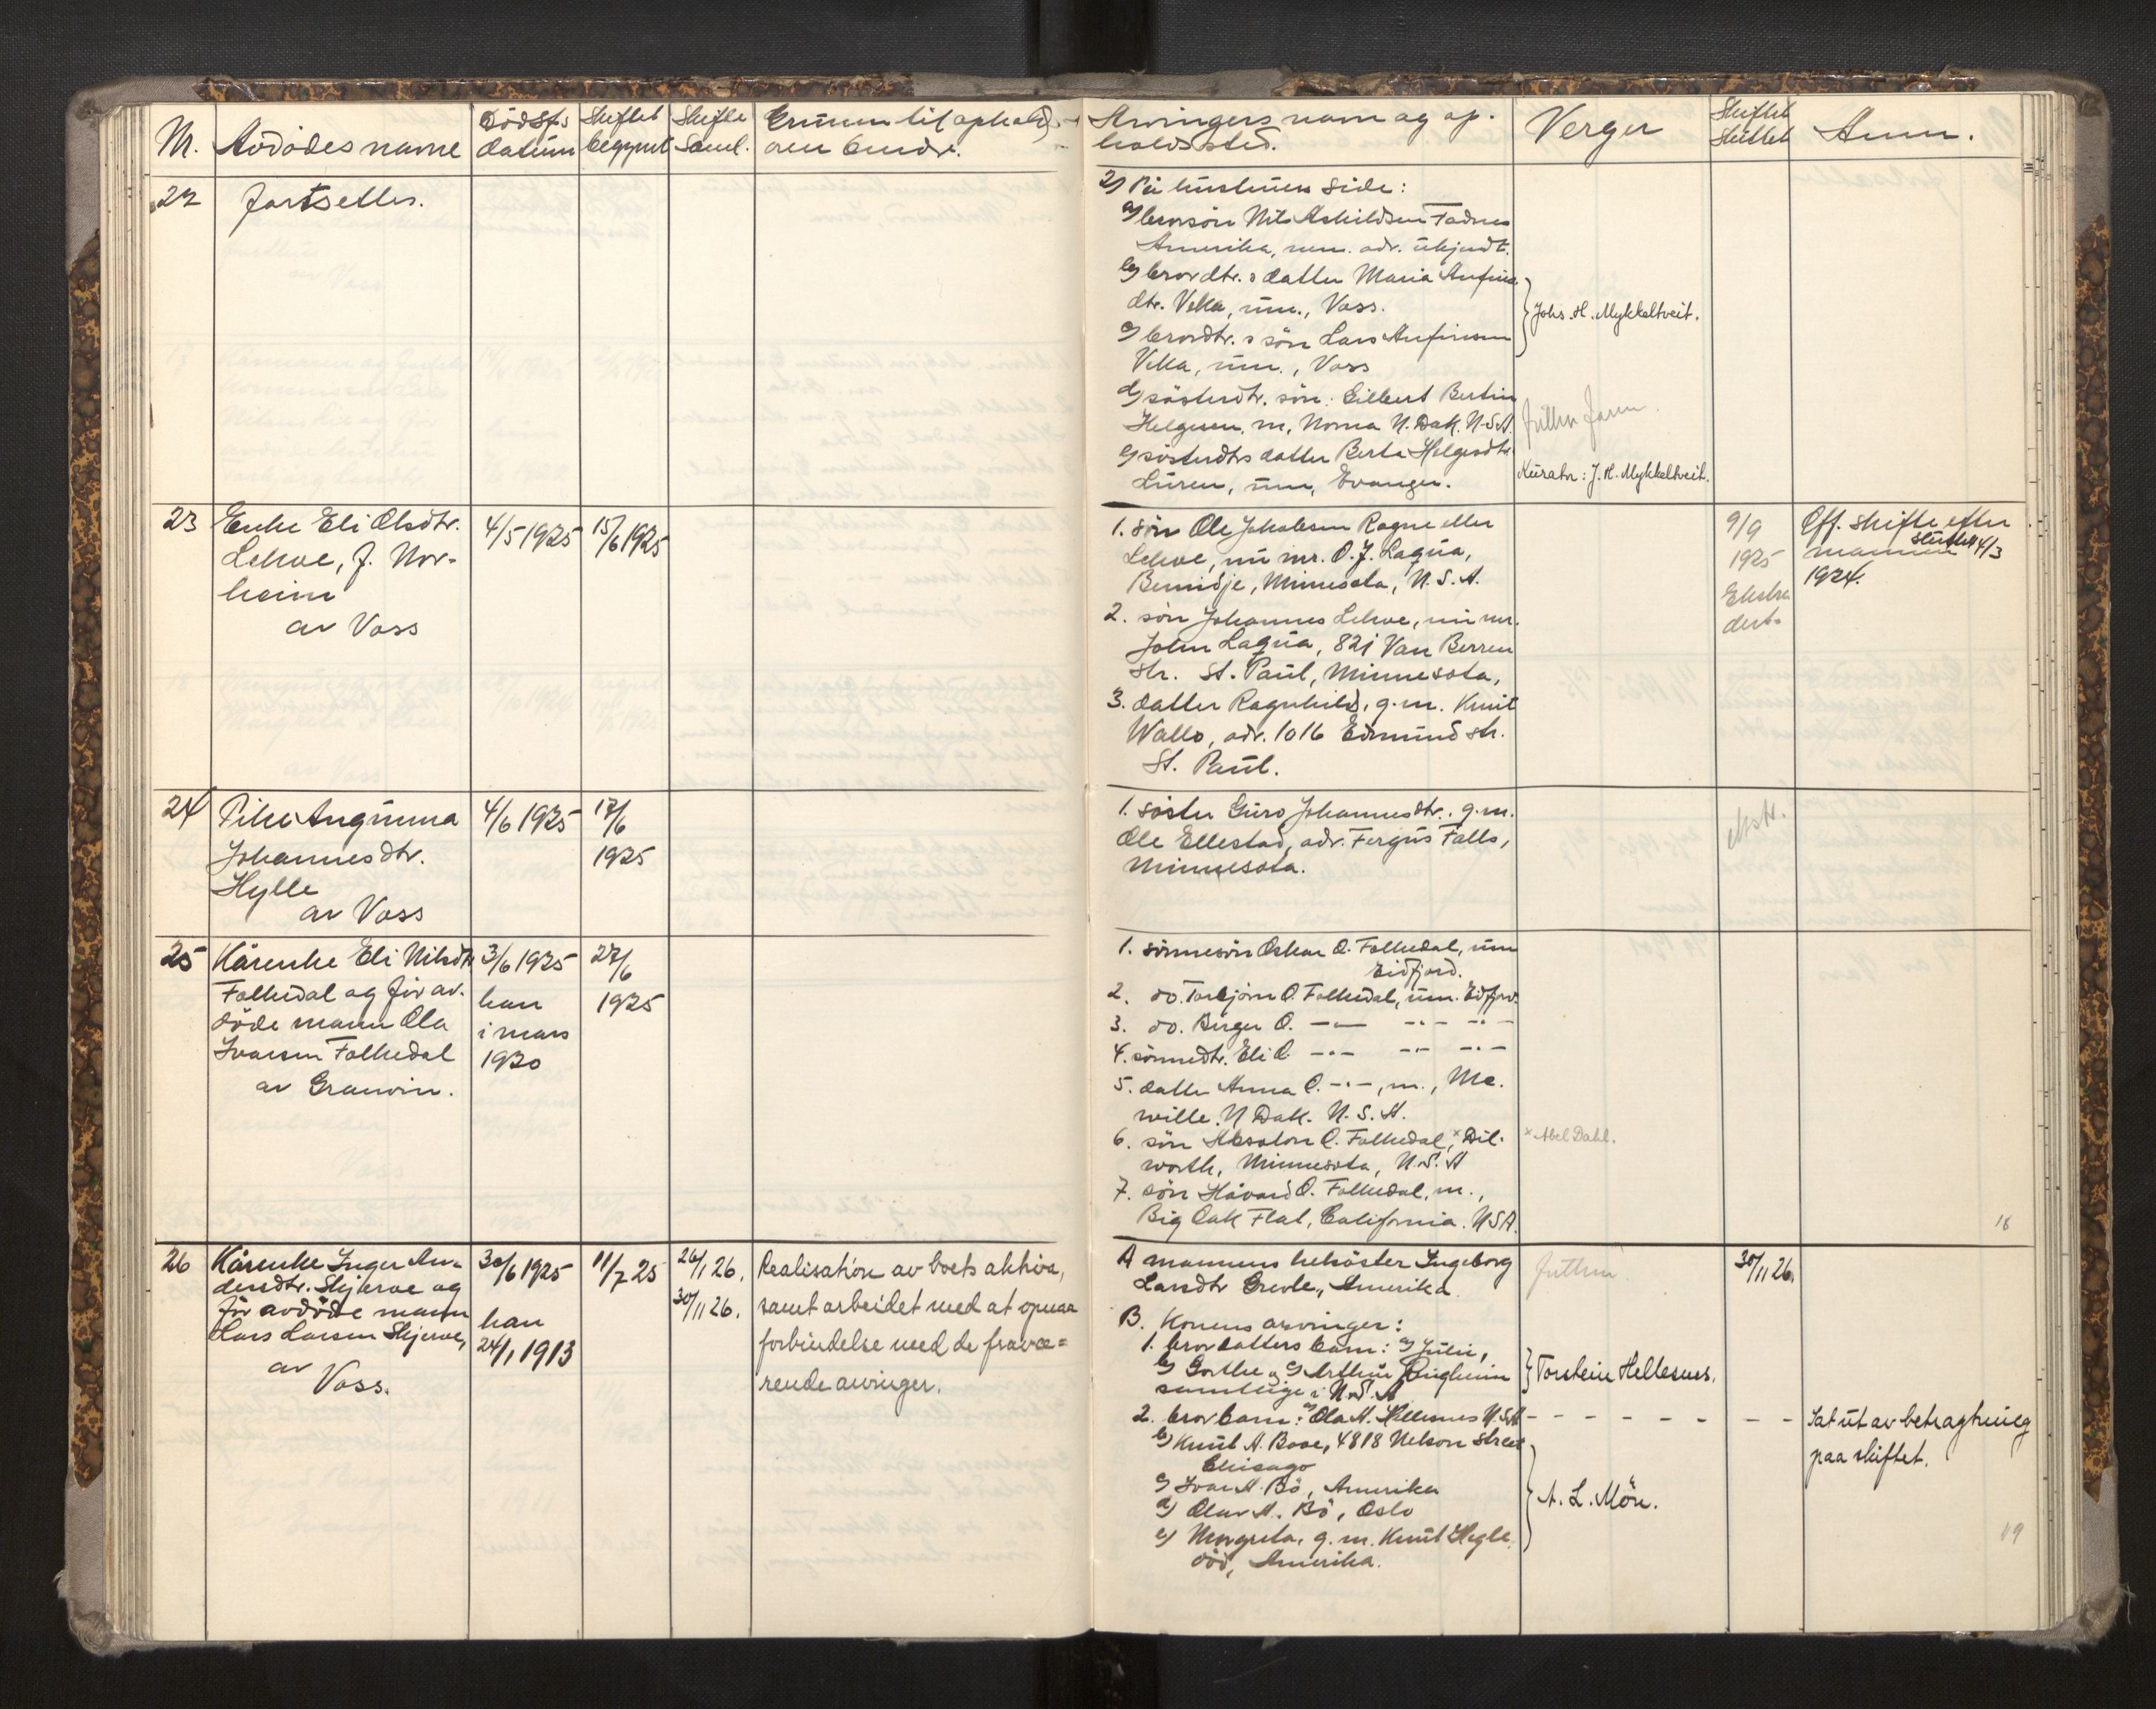 Nr. Avdödes navne Dödsfs datum Skiftet begynt Skifte Saml. Grunnen til ophold
oven 6 mdr.
Arvingers navn og op-
holdssted. Verger Skiftet Sluttet Anm.
22 fortsettes.
2) På hustruens side:
a) brorsön Nils Askildsen Tadnes
Amerika, adr. ukjendt.
b) brordtr.s datter Maria Anfins-
dtr. Vella, um., Voss.
c) brordtr.s sön Lars Anfinsen
Vella, um., Voss
Johs. H. Mykkeltveit.
d) sösterdtr. sön: Gilbert Bertin
Helgesen, m, Noma N. Dak. U.S.A.
e) sösterdtrs datter Berta Helgesdtr.
um, Evanger.
Kurator: J. H. Mykkeltveit.
23 Enke Eli Olsdtr.
Lekve, f. Nor-
heim
av Voss
4/5 1925
15/6 1925
1. sön Ole Jakobsen Rogne eller
Lekve, nu mr. O. J. Laqua,
Bemidje, Minnesota, U.S.A.
2. sön Johannes Lekve, nu mr.
John Laqua, 821 Van Berren
str. St. Paul, Minnesota,
3. datter Ragnhild, g.m. Knut
Wallo, adr. 1016 Edmund str.
St. Paul.
9/9
1925
Ekstra
dert.
Off. skifte efter
mannen sluttet 14/3
1924.
24 Pike Angunna
Johannesdtr.
Hylle
av Voss
4/6 1925
17/6
1925
1. söster Guro Johannesdtr. g.m.
Ole Ellestad, adr. Fergus Falls,
Minnesota.
ekstr.
25 Kårenke Eli Nilsdtr
Folkedal og för av-
döde mann Ola
Ivarsen Folkedal
av Granvin.
3/6 1925
han
i mars
1920
27/6
1925
1. sönnesön Oskar O. Folkedal, um
Eidfjord.
2. do. Torbjörn O. Folkedal, um. Eidfjord.
3. do. Birger O. -"- -"- -"-
4. sönnedtr. Eli O. -"- -"- -"-
5. datter Anna O. -"-, m., Mc.
ville. N Dak. U.S.A.
6. sön Absalon O. Folkedal, x Dil-
worth, Minnesota, U.S.A
x Abel Dahl.
7. sön Håvard O. Folkedal, m.,
Big Oak Flat, California. USA.
18
26 Kårenke Inger An-
dersdtr. Skjerve og
för avdöde mann
Lars Larsen Skjerve,
av
Voss.
30/6 1925
han
24/1 1913
11/7 25
26/1 26.
30/11 26.
Realisation av boets aktiva,
samt arbeidet med at opnaa
forbindelse med de fravæ=
rende arvinger.
A mannens helsöster Ingeborg
Larsdtr Grevle, Amerika
30/11 26.
B. Konens arvinger:
1. brordatters barn: a) Julie,
b) Gorthe og c) Arthur Ringheim
samtlige i U.S.A
Torstein Hellesnes.
2. brorbarn: a) Ola A. Hellesnes U.S.A - - - - - - - -
Sat ut av betragtning
paa skiftet.
b) Knut A. Boae, 4818 Nelson Street
Chicago
c) Ivar A. Bö, Amerika
d) Olav A. Bö, Oslo
e) Margreta, g.m. Knut Hegle
död, Amerika.
A. L. Möen.
19